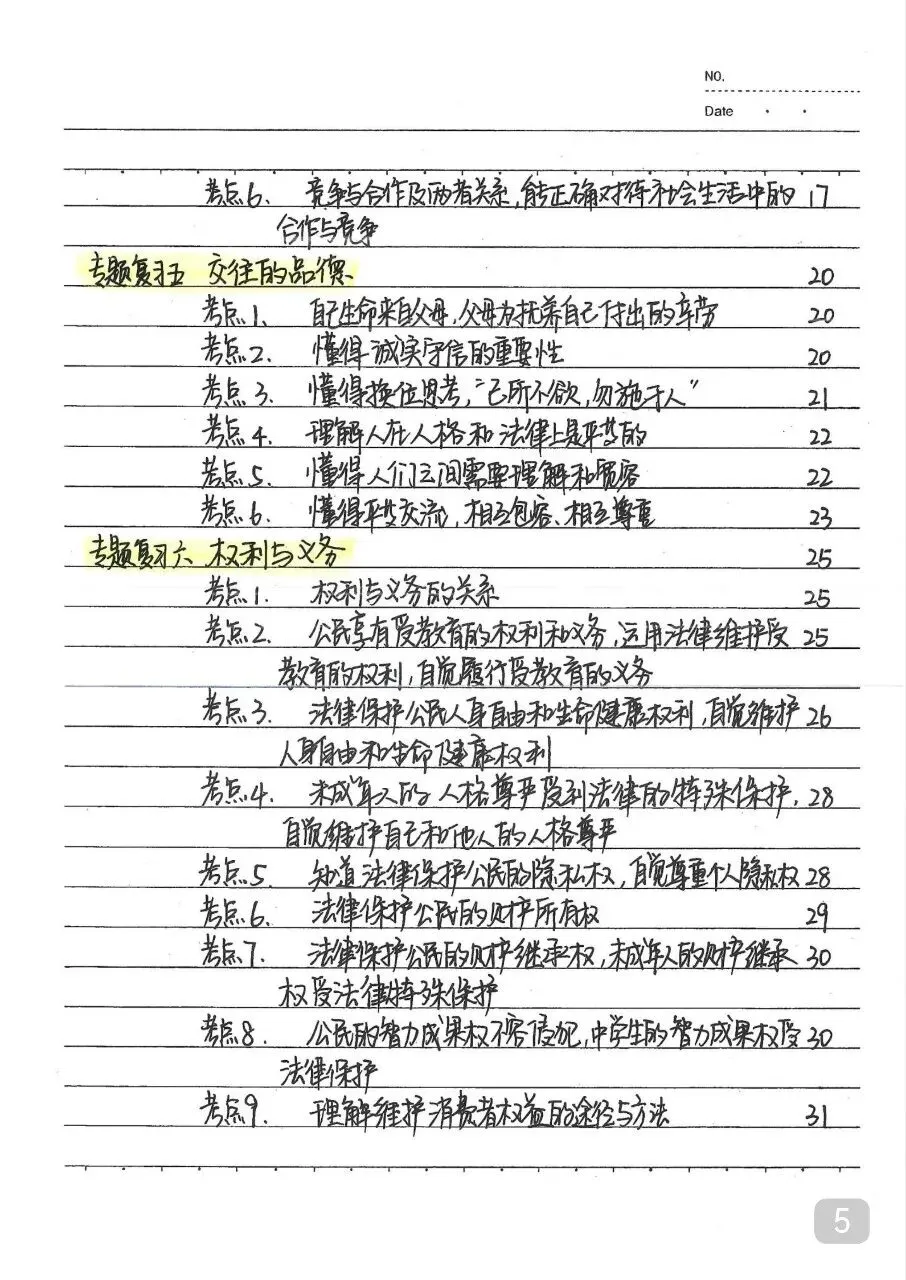 NO.
Date
考点6. 竞争与合作及两者关系,能正确对待社会生活中的 17
合作与竞争
专题复习五 交往的品德 20
考点1. 自己生命来自父母,父母为抚养自己付出的辛劳 20
考点2. 懂得诚实守信的重要性 20
考点3. 懂得换位思考,“己所不欲,勿施于人” 21
考点4. 理解人在人格和法律上是平等的 22
考点5. 懂得人们之间需要理解和宽容 22
考点6. 懂得平等交流,相互包容、相互尊重 23
专题复习六 权利与义务 25
考点1. 权利与义务的关系 25
考点2. 公民享有受教育的权利和义务,运用法律维护受 25
教育的权利,自觉履行受教育的义务
考点3. 法律保护公民人身自由和生命健康权利,自觉维护 26
人身自由和生命健康权利
考点4. 未成年人的人格尊严受到法律的特殊保护, 28
自觉维护自己和他人的人格尊严
考点5. 知道法律保护公民的隐私权,自觉尊重个人隐私权 28
考点6. 法律保护公民的财产所有权 29
考点7. 法律保护公民的财产继承权,未成年人的财产继承 30
权受法律特殊保护
考点8. 公民的智力成果权不容侵犯,中学生的智力成果权受 30
法律保护
考点9. 理解维护消费者权益的途径与方法 31
5